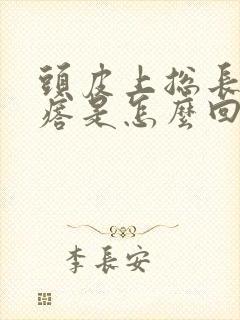 頭皮上總長
痞是怎麼回
李長安